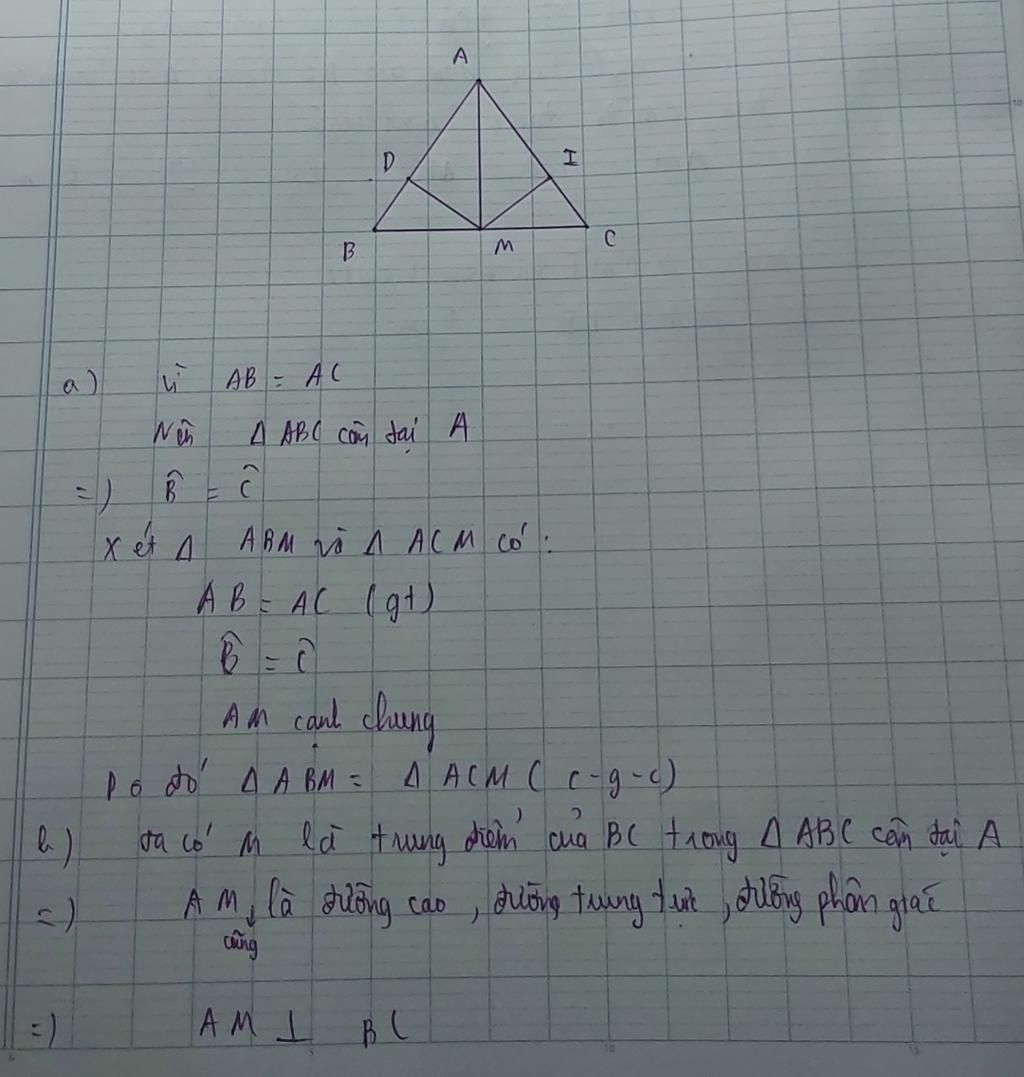 A
D
I
B
M
C
a) Vì AB = AC
Nên Δ ABC cân tại A
=) B̂ = Ĉ
Xét Δ ABM và Δ ACM có:
AB = AC (gt)
B̂ = Ĉ
AM cạnh chung
Do đó Δ ABM = Δ ACM ( c-g-c)
b) Ta có M là trung điểm của BC trong Δ ABC cân tại A
=) AM cũng là đường cao, đường trung trực, đường phân giác
=) AM ⊥ BC